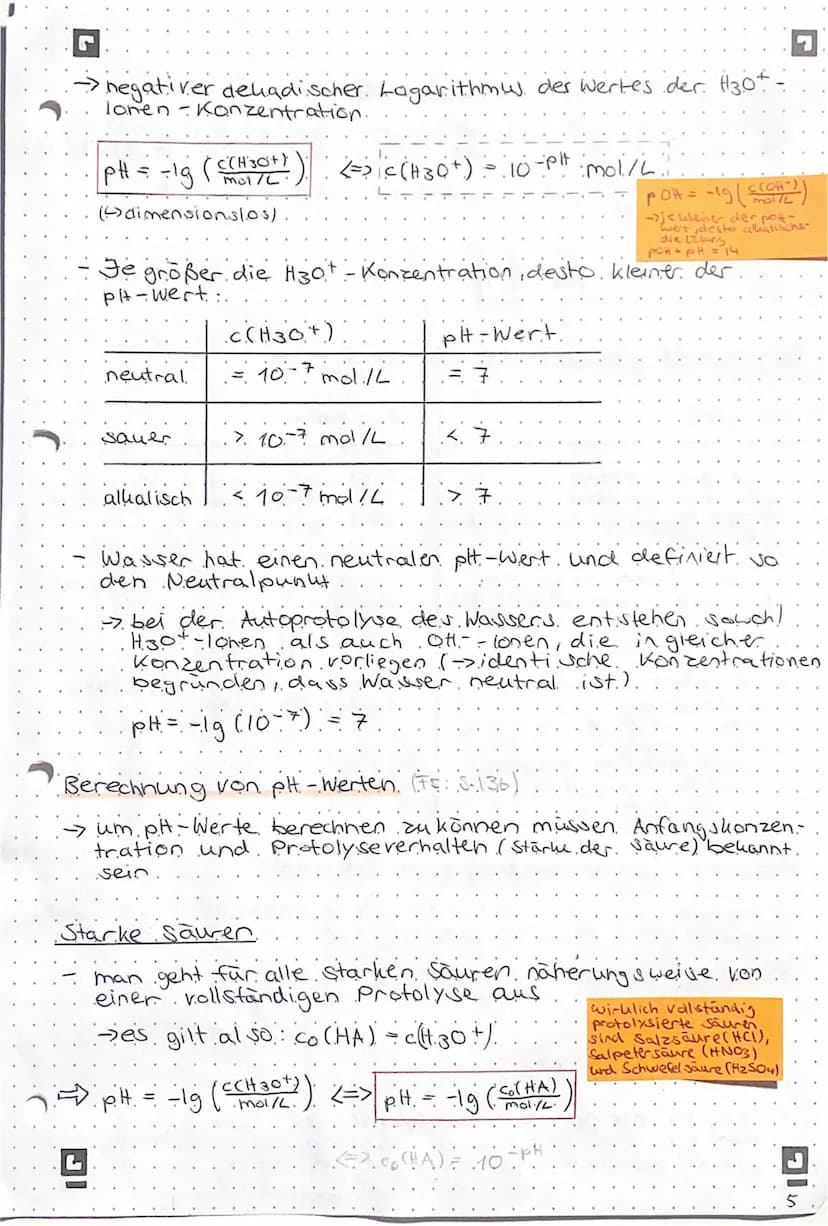 → negativer dekadischer Logarithmus des Wertes der H3O+-
Ionen-Konzentration
pH = -lg (c(H3O+) / mol/L) <=> c(H3O+) = 10^-pH mol/L
(↳dimensionslos)
pOH = -lg (c(OH-) / mol/L)
→ je kleiner der pOH-
Wert, desto alkalischer
die Lösung
pOH + pH = 14
- Je größer die H3O+-Konzentration, desto kleiner der
pH-Wert:
c(H3O+) pH-Wert
neutral = 10^-7 mol/L = 7
sauer > 10^-7 mol/L < 7
alkalisch < 10^-7 mol/L > 7
- Wasser hat einen neutralen pH-Wert und definiert so
den Neutralpunkt
→ bei der Autoprotolyse des Wassers entstehen sowohl
H3O+-Ionen als auch OH--Ionen, die in gleicher
Konzentration vorliegen (→identische Konzentrationen
begründen, dass Wasser neutral ist)
pH = -lg (10^-7) = 7
Berechnung von pH-Werten (TE: S.136)
→ um pH-Werte berechnen zu können müssen Anfangskonzen-
tration und Protolyseverhalten (Stärke der Säure) bekannt
sein
Starke Säuren
- man geht für alle starken Säuren näherungsweise von
einer vollständigen Protolyse aus
→ es gilt also: c0(HA) = c(H3O+)
wirklich vollständig
protolysierte Säuren
sind Salzsäure (HCl),
Salpetersäure (HNO3)
und Schwefelsäure (H2SO4)
⇒ pH = -lg (c(H3O+) / mol/L) <=> pH = -lg (c0(HA) / mol/L)
<=> c0(HA) = 10^-pH
5